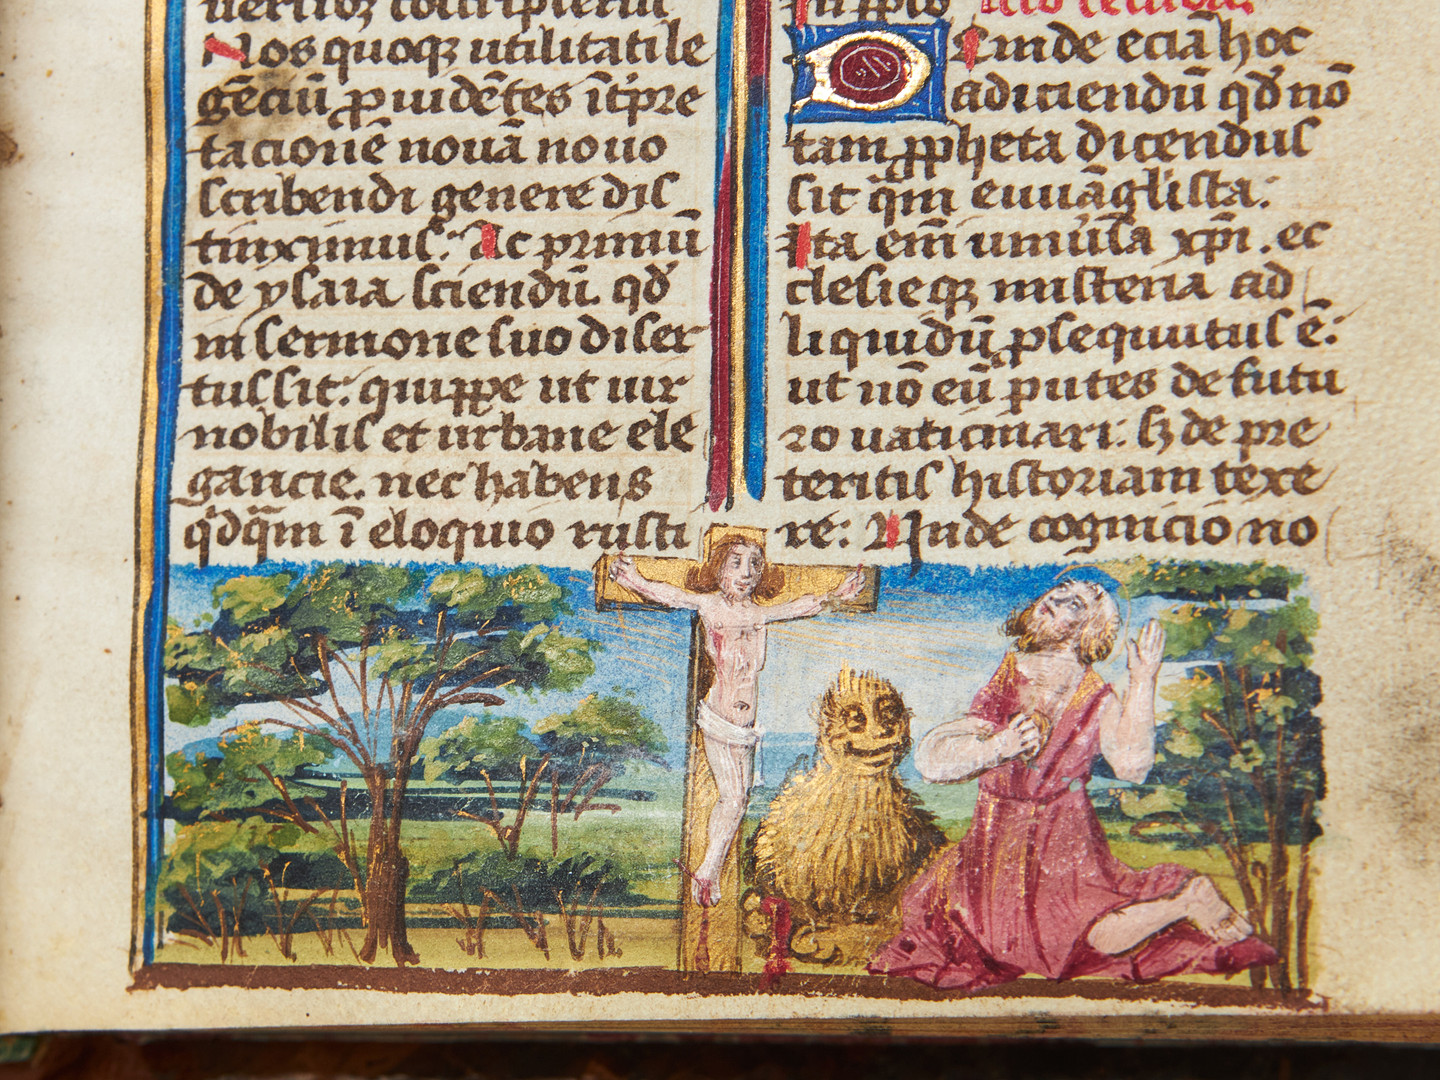 Nos quoqꝫ utilitati le
gēciū ꝓuidētes ītꝑre
tacionē nouā nouo
scribendi genere dis
tinximus. Ac primū
de ysaia sciendū qđ
in sermone suo diser
tus sit: quippe ut uir
nobilis et urbane ele
gancie. nec habens
qͥdq̄m ī eloquio rusti
Einde eciā hoc
adiciendū qđ nō
tam ꝓpheta dicendus
sit q̄m euuāgĺista.
Ita em̄ uniuͥsa xp̄i . ec
clesieqꝫ misteria ad
liquidū ꝑsequutus ē:
ut nō eū putes de futu
ro uaticinari: sꝫ de pre
teritis historiam texe
re: Unde cognicio no